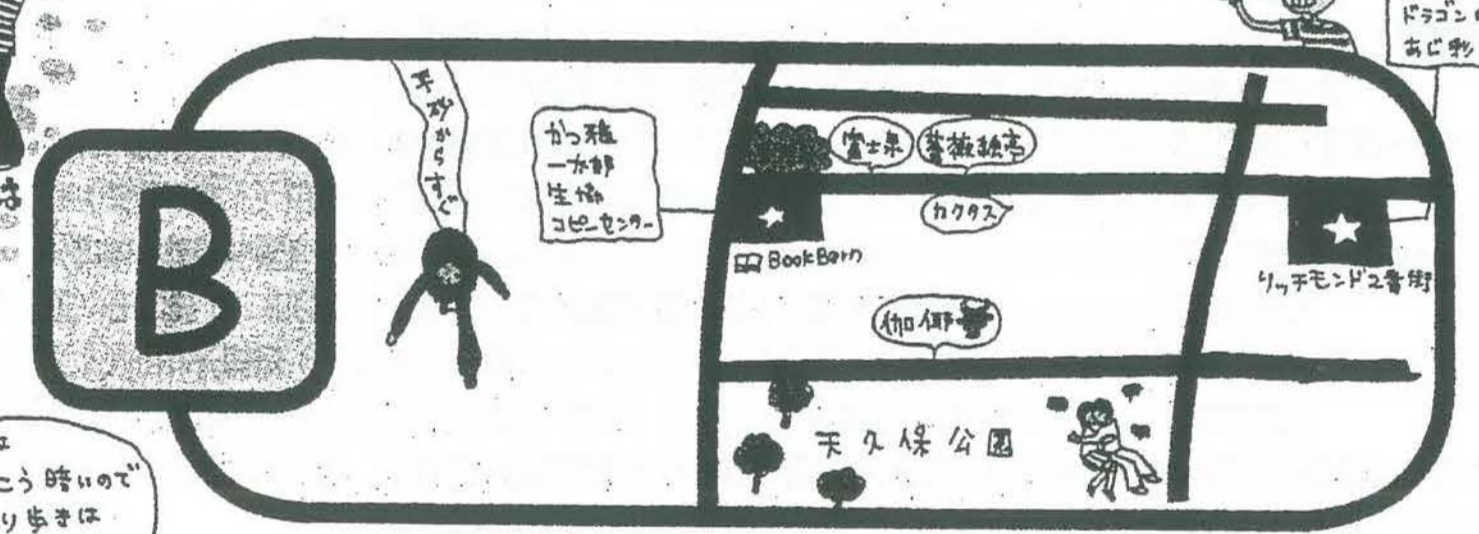 ドラゴン
あじ彩
平砂からすぐ
かつ雅
一太郎
生協
コピーセンター
富士泉
薔薇絵亭
カクタス
BookBarn
リッチモンド2番街
伽倻
天久保公園
B
こう暗いので
り歩きは